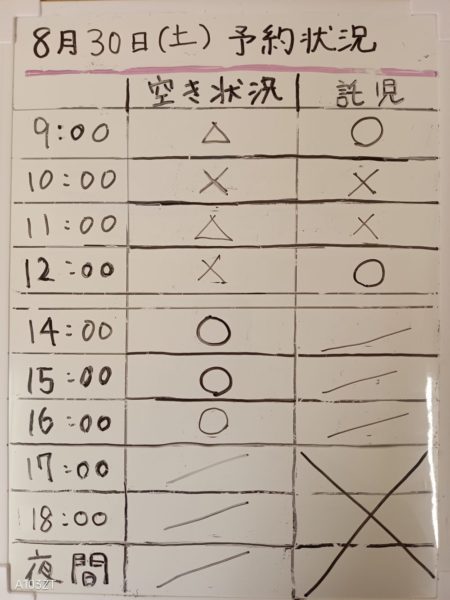 8月30日(土) 予約状況
空き状況 託児
9:00 △ ○
10:00 × ×
11:00 △ ×
12:00 × ○
14:00 ○ ／
15:00 ○ ／
16:00 ○ ／
17:00 ／ ×
18:00 ／
夜間 ／
A103ZT